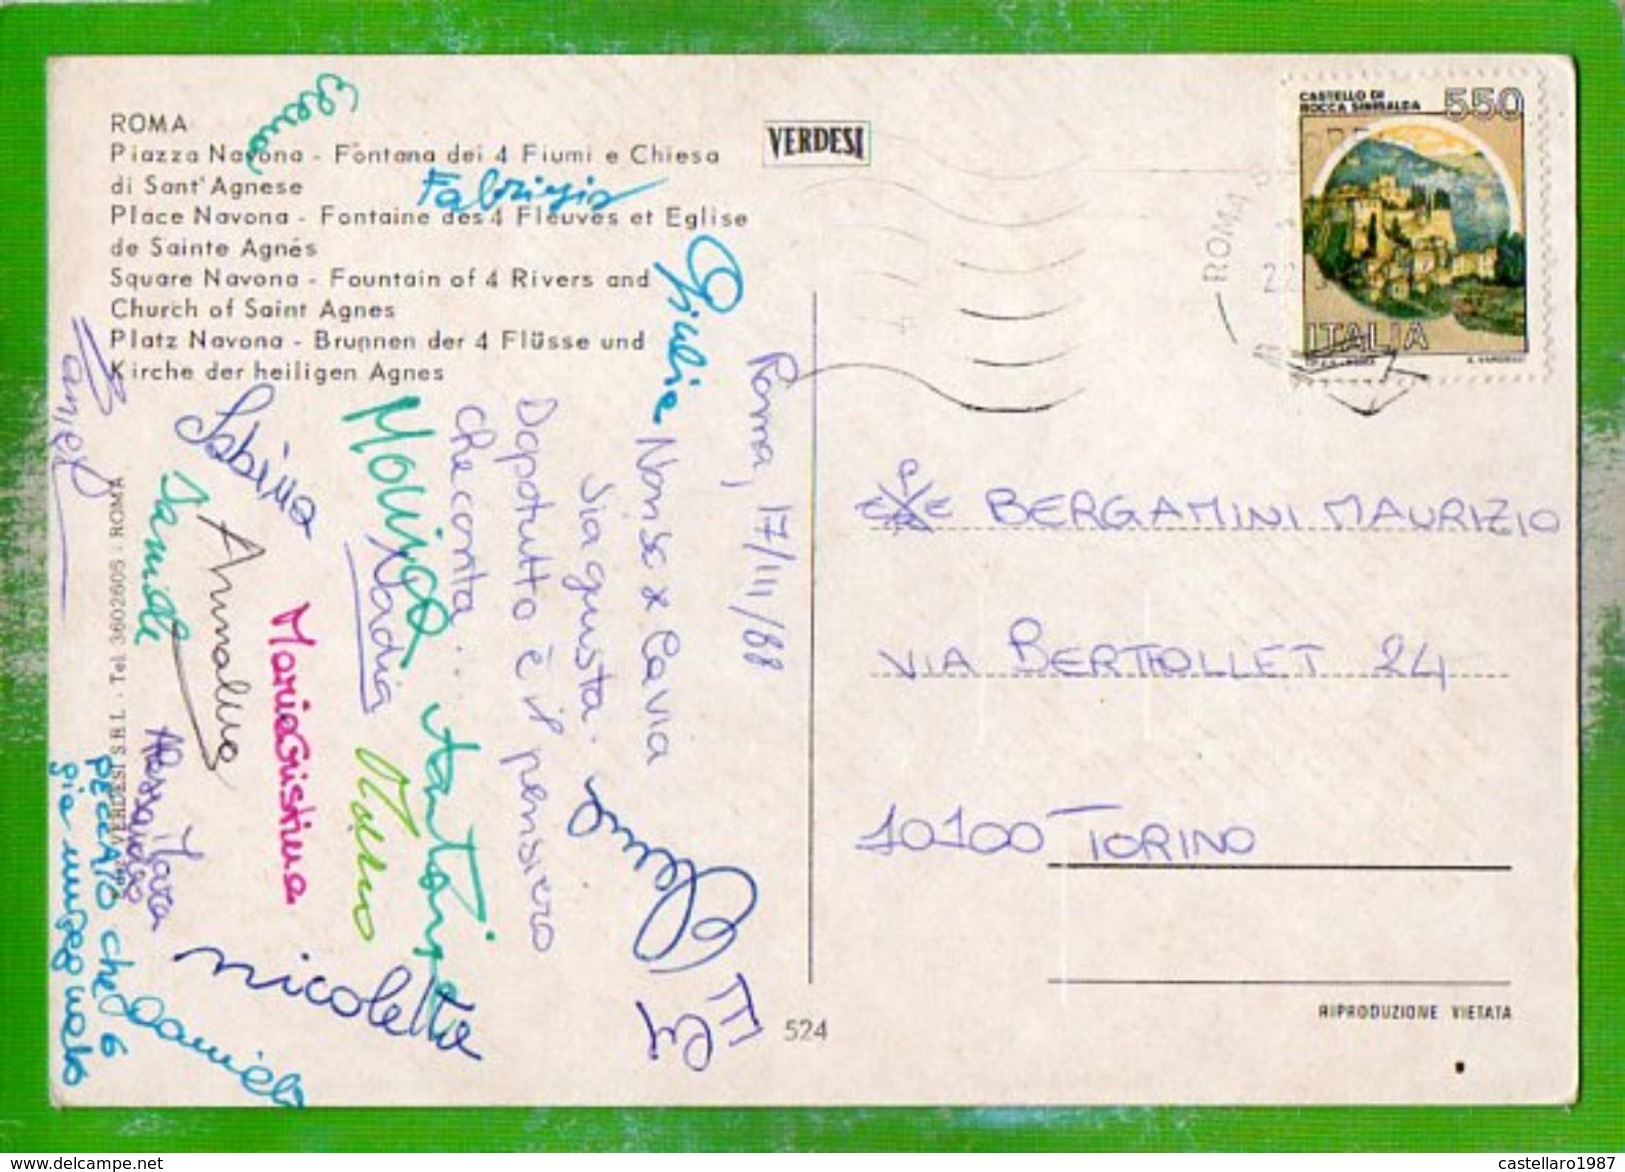 ROMA
Piazza Navona - Fontana dei 4 Fiumi e Chiesa
di Sant' Agnese
Place Navona - Fontaine des 4 Fleuves et Eglise
de Sainte Agnés
Square Navona - Fountain of 4 Rivers and
Church of Saint Agnes
Platz Navona - Brunnen der 4 Flüsse und
Kirche der heiligen Agnes
VERDESI
CASTELLO DI
ROCCA SINIBALDA
550
ITALIA
ROMA
22
Elena
Fabrizio
Giulia
Roma, 17/III/88
Non se x Cavia
sia giusta.
Dopotutto è il pensiero
che conta...
Monica
Nadia
Antonio
Sabina
Daniele
Annalisa
Maria Cristina
Marco
Alessandro
Nicoletta
Daniela
PECCATO che 6
gia
VERDESI S.R.L. - Tel. 3602605 - ROMA
BERGAMINI MAURIZIO
VIA BERTHOLLET 24
10100 TORINO
524
RIPRODUZIONE VIETATA
castellaro1987